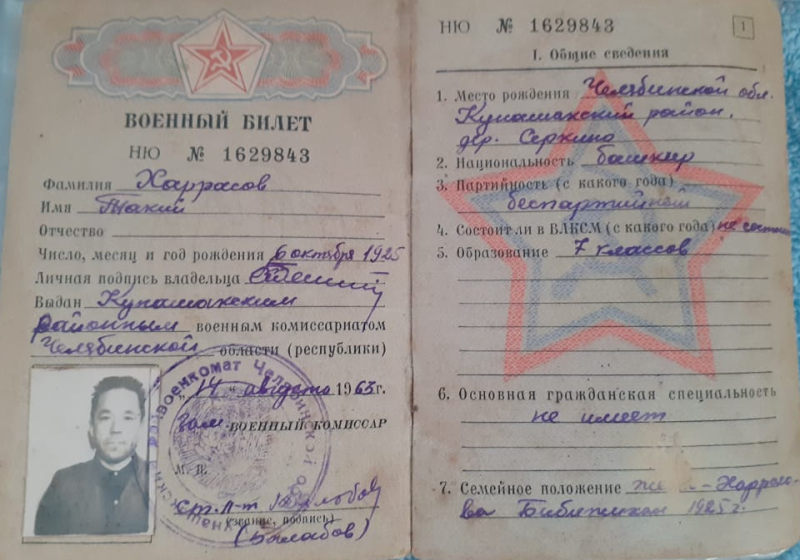 ВОЕННЫЙ БИЛЕТ
НЮ № 1629843
Фамилия Харрасов
Имя Такий
Отчество
Число, месяц и год рождения 6 октября 1925
Личная подпись владельца
Выдан Кунашакским
районным военным комиссариатом
Челябинской области (республики)
„14" августа 1963 г.
Зам. ВОЕННЫЙ КОМИССАР
М. П.
(звание, подпись)
(Балабов)
НЮ № 1629843
1
I. Общие сведения
1. Место рождения Челябинской обл.
Кунашакский район,
дер. Серкино
2. Национальность башкир
3. Партийность (с какого года)
беспартийный
4. Состоит ли в ВЛКСМ (с какого года) не
5. Образование 7 классов
6. Основная гражданская специальность
не имеет
7. Семейное положение Харрасо-
ва 1925 г.